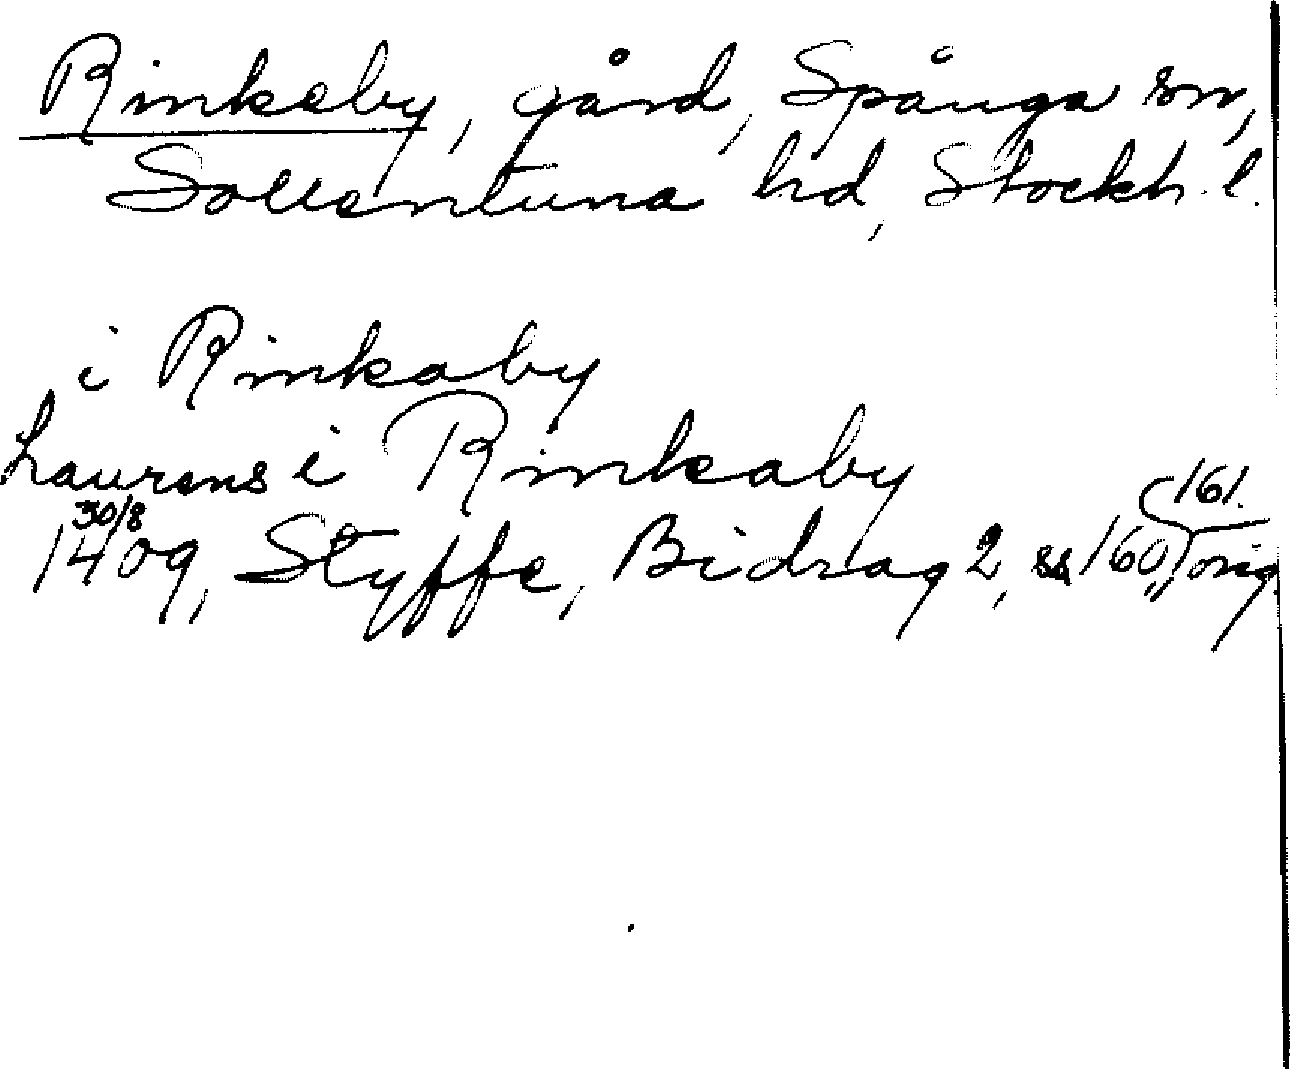 Rinkeby, gård, Spånga sn,
Sollentuna hd, Stockh. l.
i Rinkaby
Laurens i Rinkaby
30/8 161.
1409, Styffe, Bidrag 2, ss 160, orig.